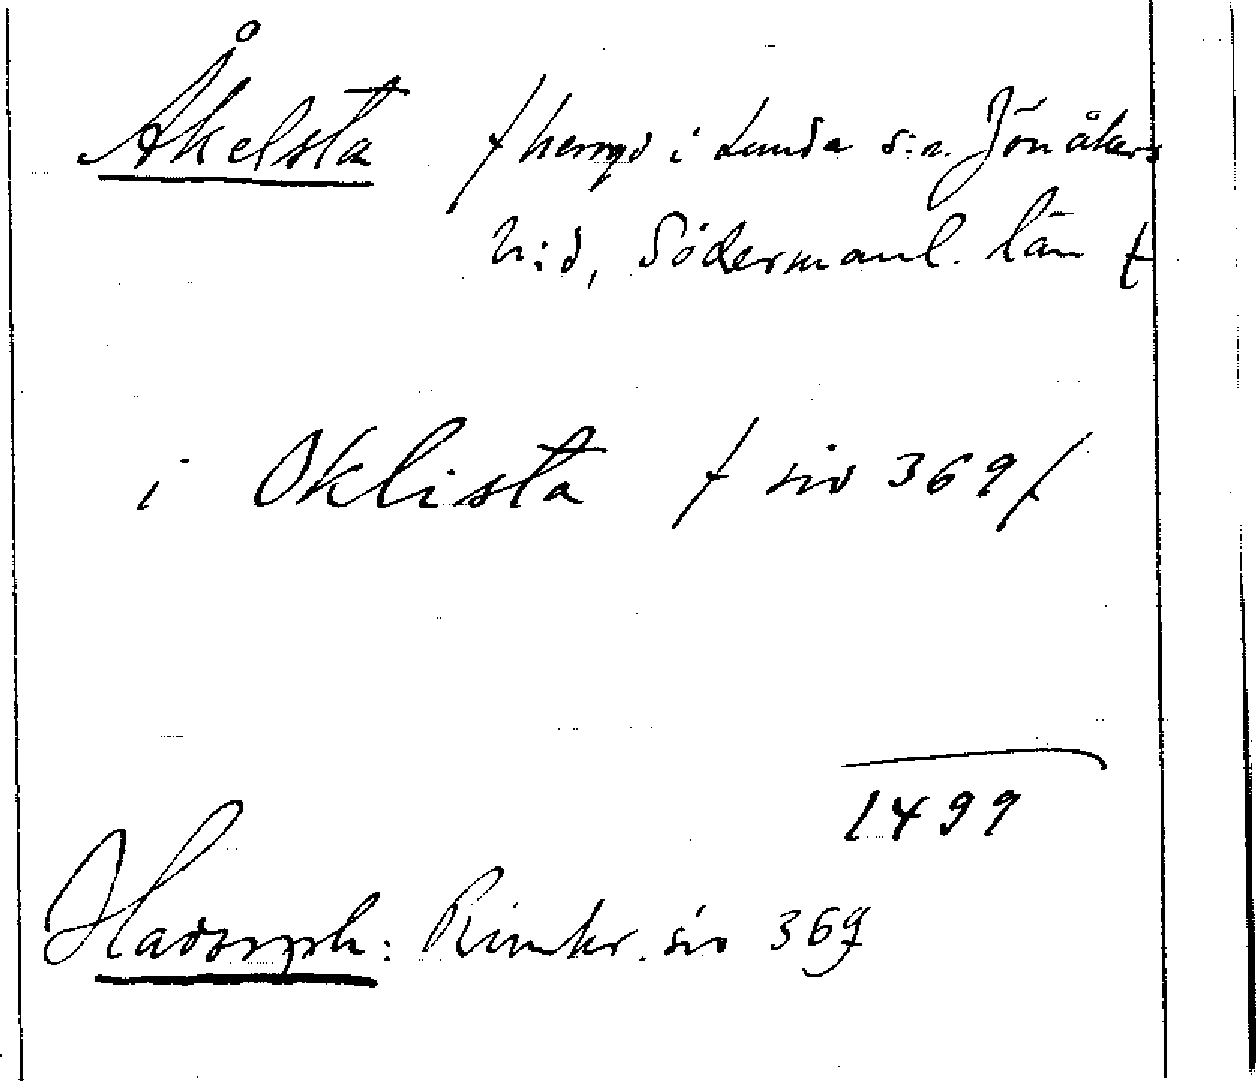 Åkelsta / hemgd i Lunda s:n. Jönåkers
h:d, Södermanl. län /
i Oklista / sid 369 /
1499
Hadorph: Rimkr. sid 369